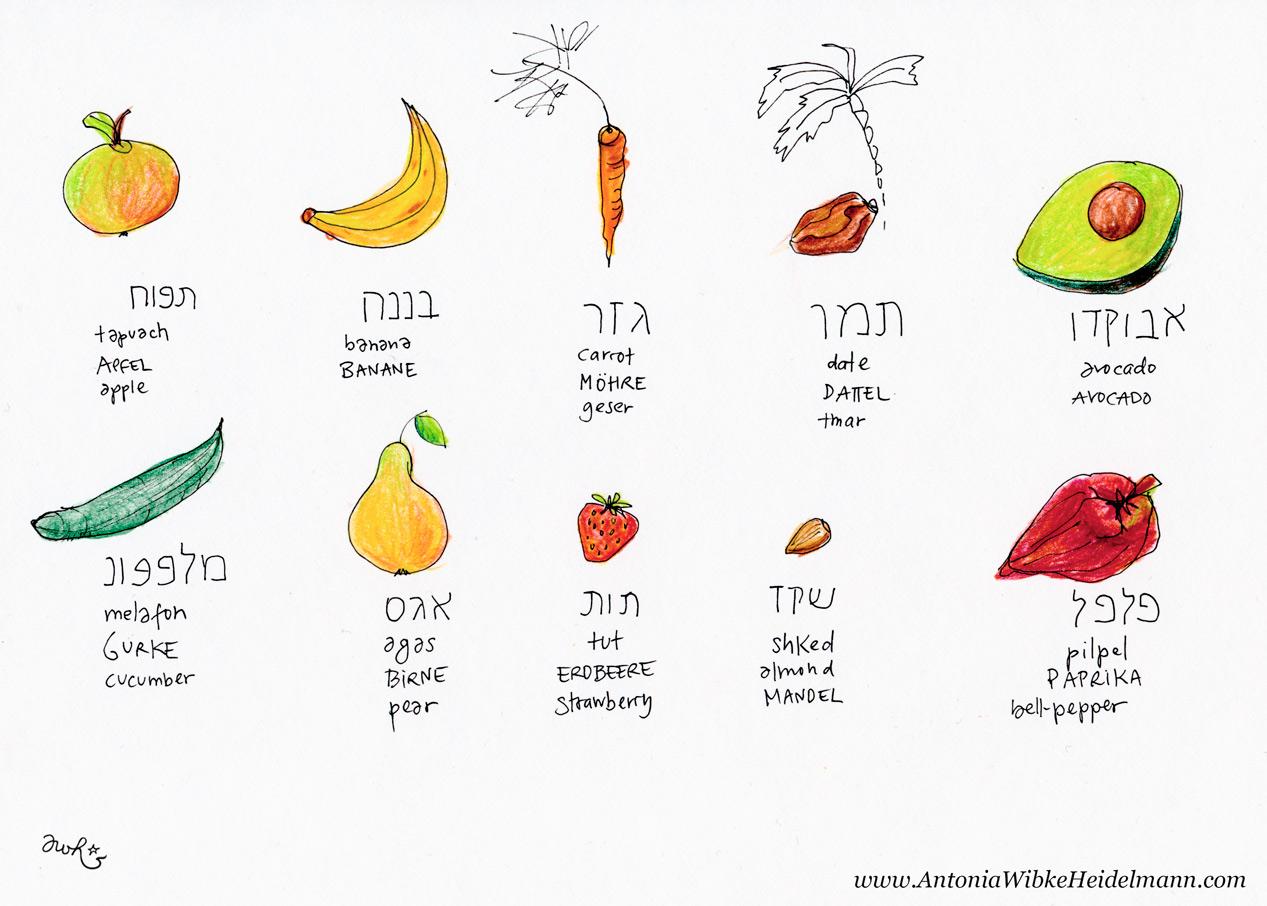 תפוח
tapuach
APFEL
apple
בננה
banana
BANANE
גזר
carrot
MÖHRE
geser
תמר
date
DATTEL
tmar
אבוקדו
avocado
AVOCADO
מלפפונ
melafon
GURKE
cucumber
אגס
agas
BIRNE
pear
תות
tut
ERDBEERE
strawberry
שקד
shked
almond
MANDEL
פלפל
pilpel
PAPRIKA
bell-pepper
awh
www.AntoniaWibkeHeidelmann.com